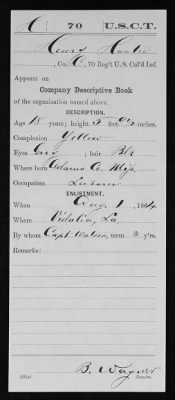 H 70 U.S.C.T.
Henry Hunter
, Co. C, 70 Reg't U. S. Col'd Inf.
Appears on
Company Descriptive Book
of the organization named above.
DESCRIPTION.
Age 18 years; height 5 feet 9½ inches.
Complexion Yellow
Eyes Grey ; hair Blk
Where born Adams Co. Miss.
Occupation Laborer
ENLISTMENT.
When Aug. 1 , 1864.
Where Vidalia, La.
By whom Capt Watson, term 3 y'rs.
Remarks:
B. Wagner
Copyist.